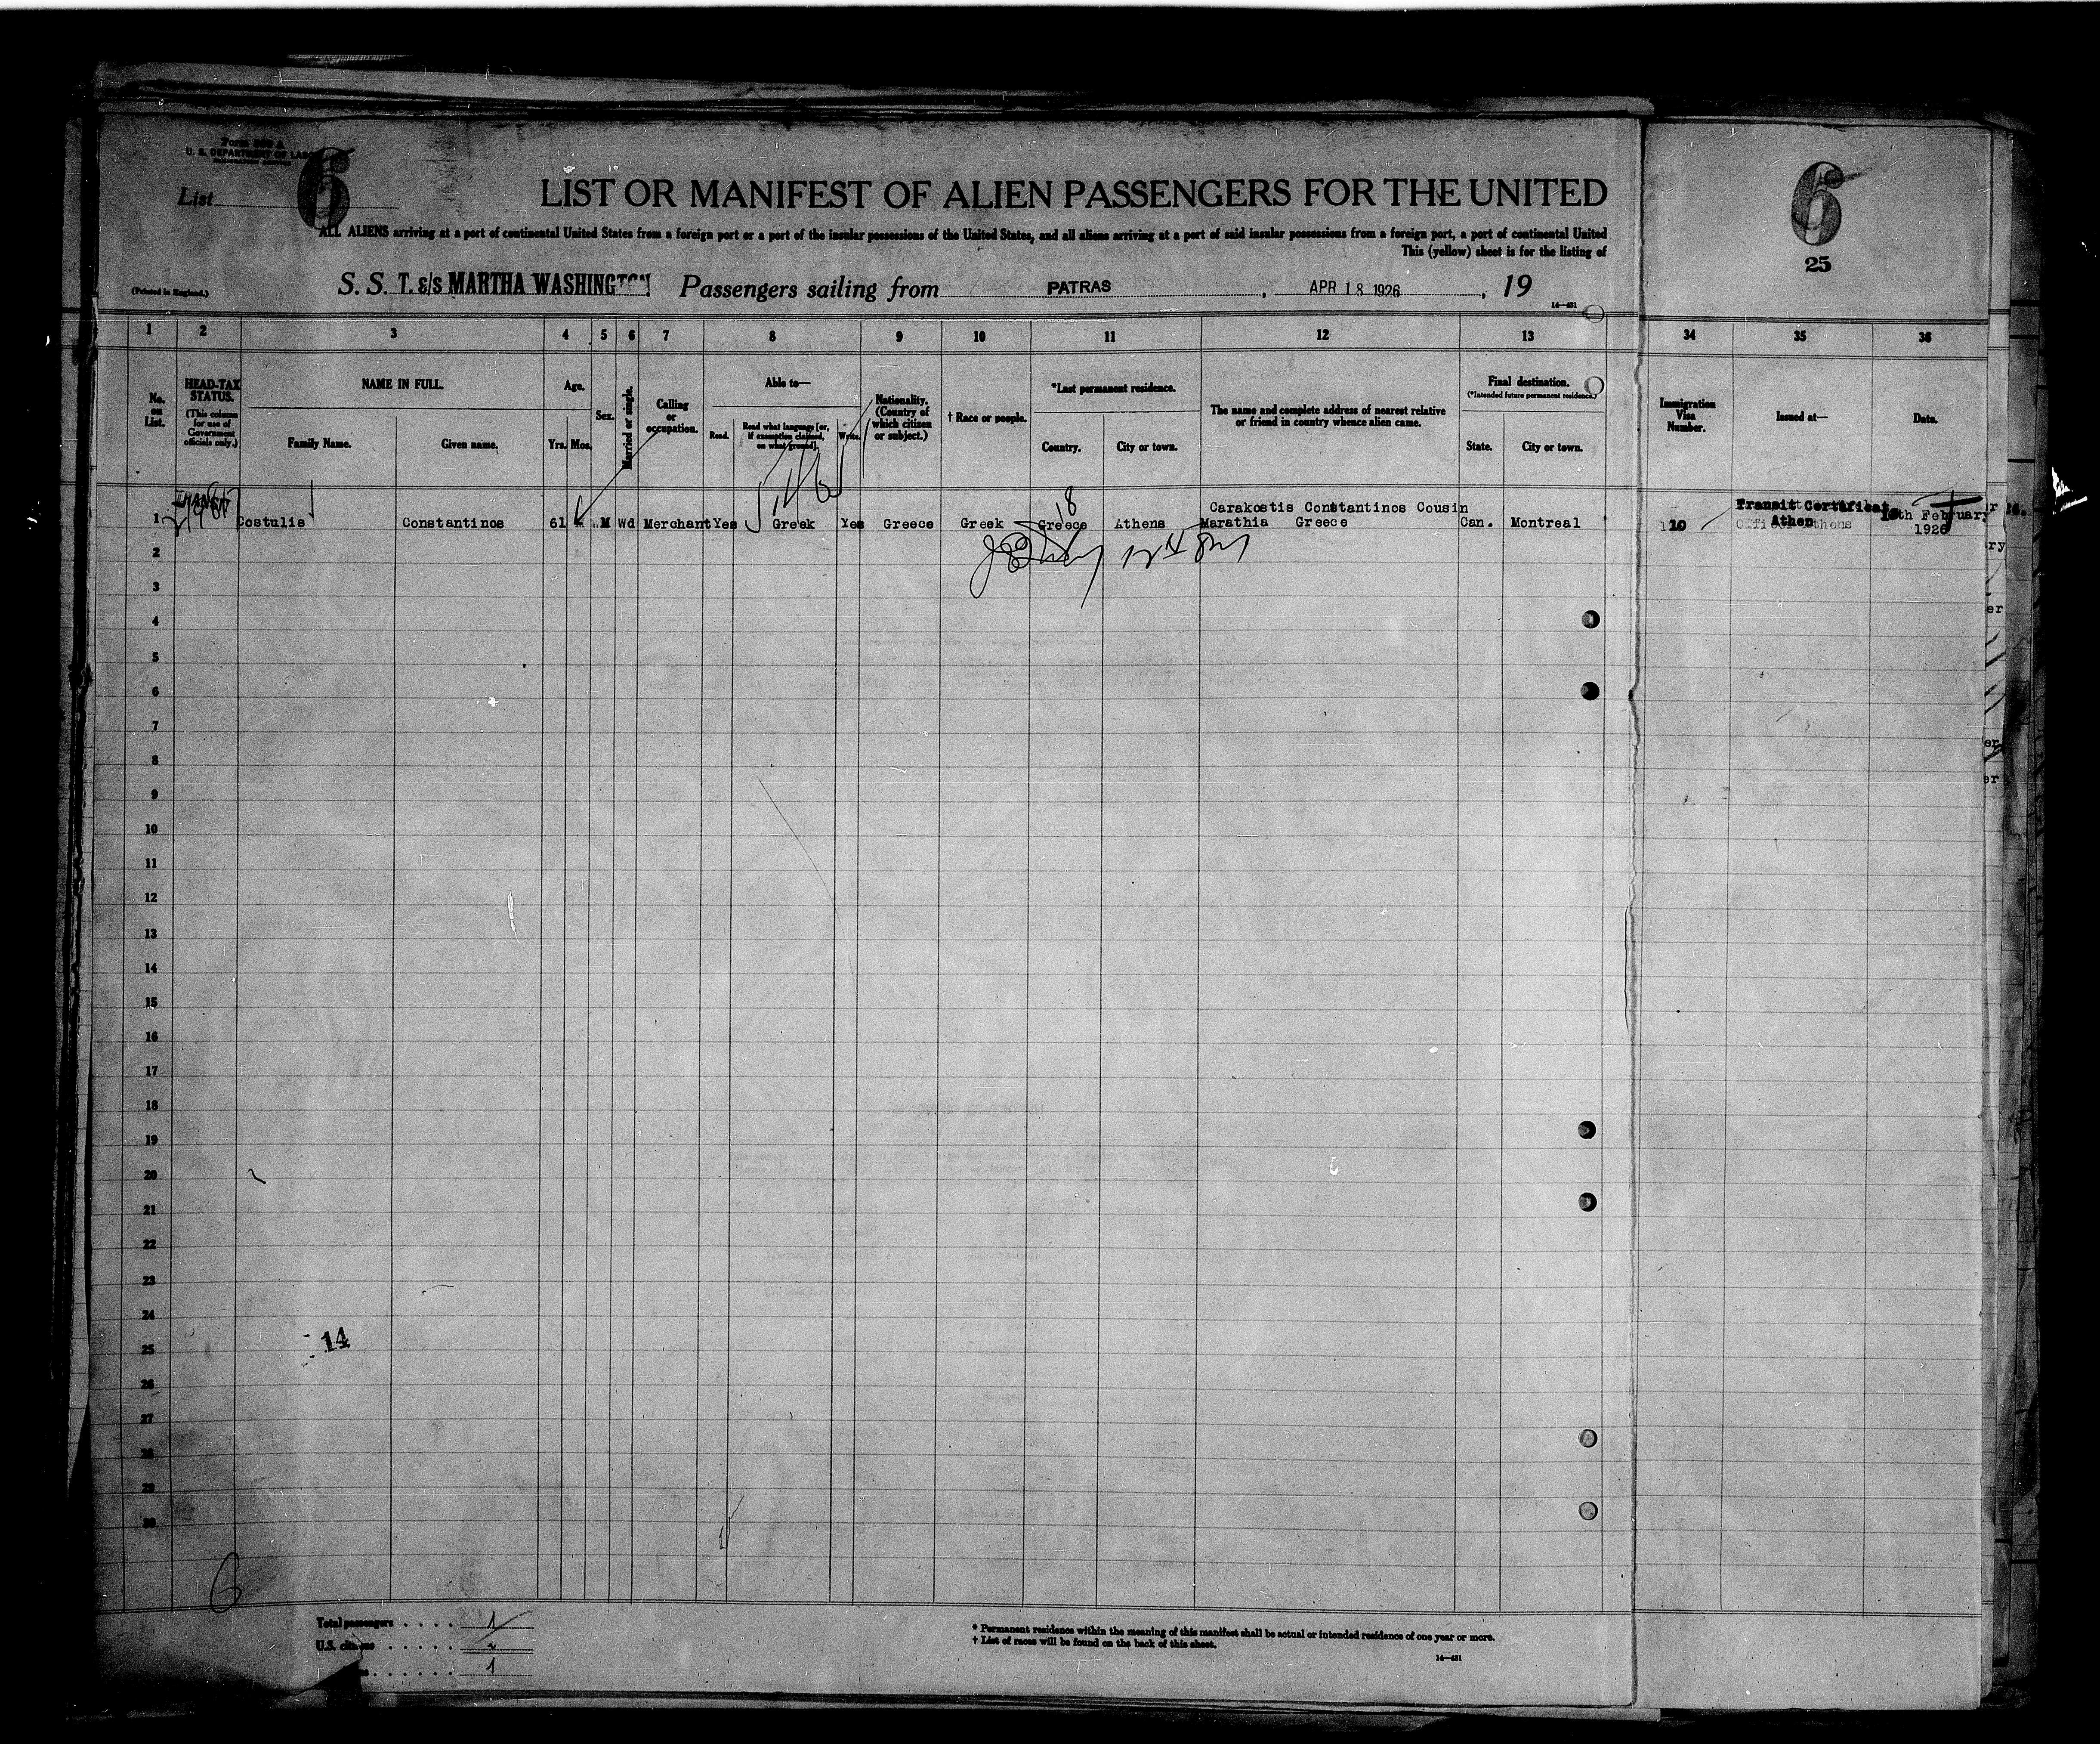 Form 500 A
U. S. DEPARTMENT OF LABOR
List 6
LIST OR MANIFEST OF ALIEN PASSENGERS FOR THE UNITED
6
25
ALL ALIENS arriving at a port of continental United States from a foreign port or a port of the insular possessions of the United States, and all aliens arriving at a port of said insular possessions from a foreign port, a port of continental United
This (yellow) sheet is for the listing of
(Printed in England.)
S. S. T. s/s MARTHA WASHINGTON Passengers sailing from PATRAS, APR 18 1926, 19
14—431
1 2 3 4 5 6 7 8 9 10 11 12 13 34 35 36
No. on List.
HEAD-TAX STATUS.
(This column for use of Government officials only.)
NAME IN FULL.
Family Name.
Given name.
Age.
Yrs. Mos.
Sex.
Married or single.
Calling or occupation.
Able to—
Read.
Read what language [or, if exemption claimed, on what ground].
Write.
Nationality. (Country of which citizen or subject.)
† Race or people.
*Last permanent residence.
Country.
City or town.
The name and complete address of nearest relative or friend in country whence alien came.
Final destination.
(*Intended future permanent residence.)
State.
City or town.
Immigration Visa Number.
Issued at—
Date.
Carakostis Constantinos Cousin
1 Costulis Constantinos 61 M Wd Merchant Yes Greek Yes Greece Greek Greece Athens Marathia Greece Can. Montreal 10 Transit Certificate Athens February 1926
18
2
3
4
5
6
7
8
9
10
11
12
13
14
15
16
17
18
19
20
21
22
23
24
14
25
26
27
28
29
30
6
Total passengers . . . . 1
U.S. citizens . . . . .
. . . . . . 1
* Permanent residence within the meaning of this manifest shall be actual or intended residence of one year or more.
† List of races will be found on the back of this sheet.
14—431